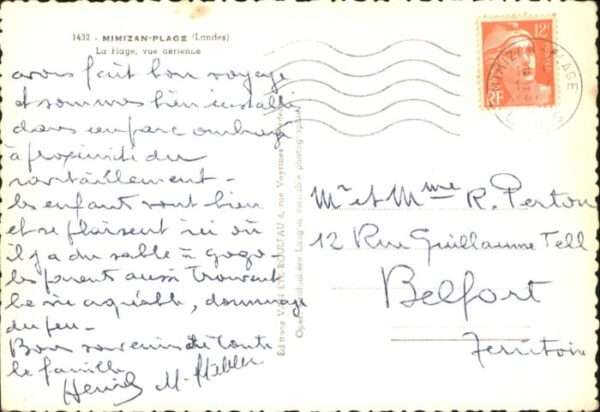 1432 - MIMIZAN-PLAGE (Landes)
La Plage, vue aérienne
avons fait bon voyage
et sommes bien installés
dans un parc ombragé
à proximité du
ravitaillement -
les enfants vont bien
et se plaisent ici où
il y a du sable à gogo -
les parents aussi trouvent
la vie agréable, dommage
du feu -
Bons souvenirs de toute
la famille
Editions
12F
RF
MIMIZAN PLAGE
Mr et Mme R. Perton
12 Rue Guillaume Tell
Belfort
Territoire